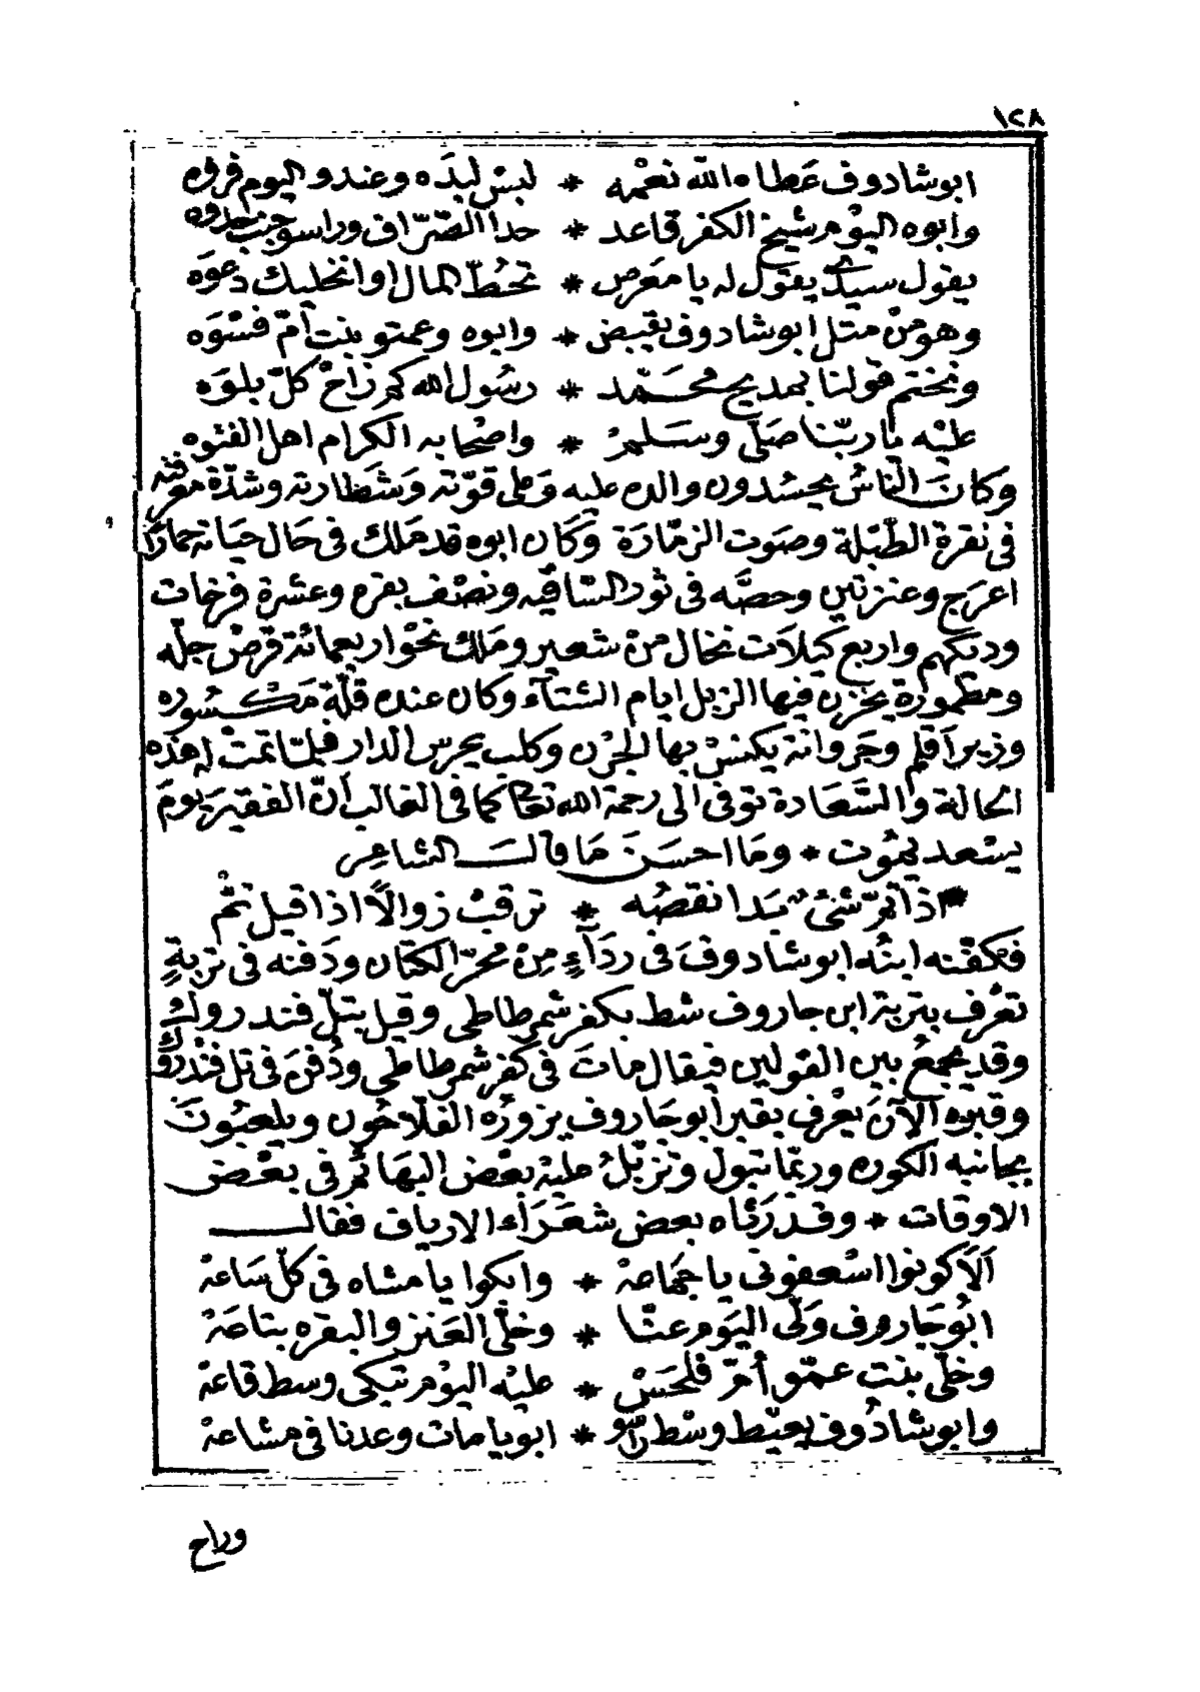 ١٢٨
ابو شادوف عَطاه الله نعْمه * لبسْ لبدَه وعندو اليوم فروه
وابوه اليوْم شيخ الكفر قاعد * حدا الصّرّاف وراسو جنب
يقول سيدي يقول له يا معَرص * تحُطّ المال اوانخليك دعوَه
وهو منْ مثل ابو شادوف يقبض * وابوه وعمتو بنت أمّ فسْوَه
ونختم قولنا بمديح محَمَّد * رسُول الله كم زاحْ كلّ بلوَه
عليْه يا ربّنا صَلّي وسَلّمْ * واصْحابه الكرام اهل الفتوه
وَكانَ الناسُ يحسُدون والده عليه وَعلى قوّته وَشَطارته وشدّة معرفته
في نقرة الطّبلة وصَوت الزمّارَة وَكَان ابوه قد مَلك في حَال حيَاته حمارًا
اعرَج وعنزتين وحصَّه في ثور السّاقيه ونصْف بقره وعشرة فرخات
وديكهم واربع كيلاَت نخال منْ شعير ومَلك نحْو اربعمائة قرصْ جلّه
ومطمورَة يخزن فيها الزبل ايام الشتآء وَكان عنده قلّة مَكْسُوره
وزير اقلم وجَروانة يكنسْ بها الجرْن وكلب يحرس الدار فلمّا تمتْ له هذه
الحالة والسَّعَادة توفى الى رحمة الله تعالى كما في الغالب أنّ الفقير يومَ
يسْعد يمُوت * ومَا احسَنَ مَا قالَ الشاعر
اذا تمّ شئٌ بَدا نقصُه * ترقبْ زوالاً اذا قيل تمْ
فكفّنه ابنُه ابو شادوفَ في ردَآءٍ مِنْ محرّ الكتّان ودَفنه في تربةٍ
تعْرف بتربة ابن جاروف شط بكفر شمرطاطي وقيل بتلّ فندروك
وقد يجمعُ بين القولين فيقال ماتَ في كفر شمرطاطي ودُفنَ في تل فنْدروك
وقبره الآنَ يعْرف بقبر أبو جَاروف يزورُه الفلاّحُون ويلعبُونَ
بجانبه الكوره وربّما تبول وتزبّلُ عليْه بعْض البهَائم في بعْض
الاوقات * وقد رَثاه بعض شعَرَاء الارياف فقالَ
اَلاَ كونوا اسْعفوني يا جمَاعهْ * وابكوا يا مشاه في كلّ سَاعهْ
ابُو جَاروف وَلّى اليَوم عنّا * وخلّى العَنز والبقره بتاعَهْ
وخلّى بنت عمّو أمّ فلحَسْ * عليْه اليوْم تبكي وسط قاعهْ
وابو شادُوف يعيّط وسْط راسُو * ابويا مات وعدنا في مشاعهْ
وراح